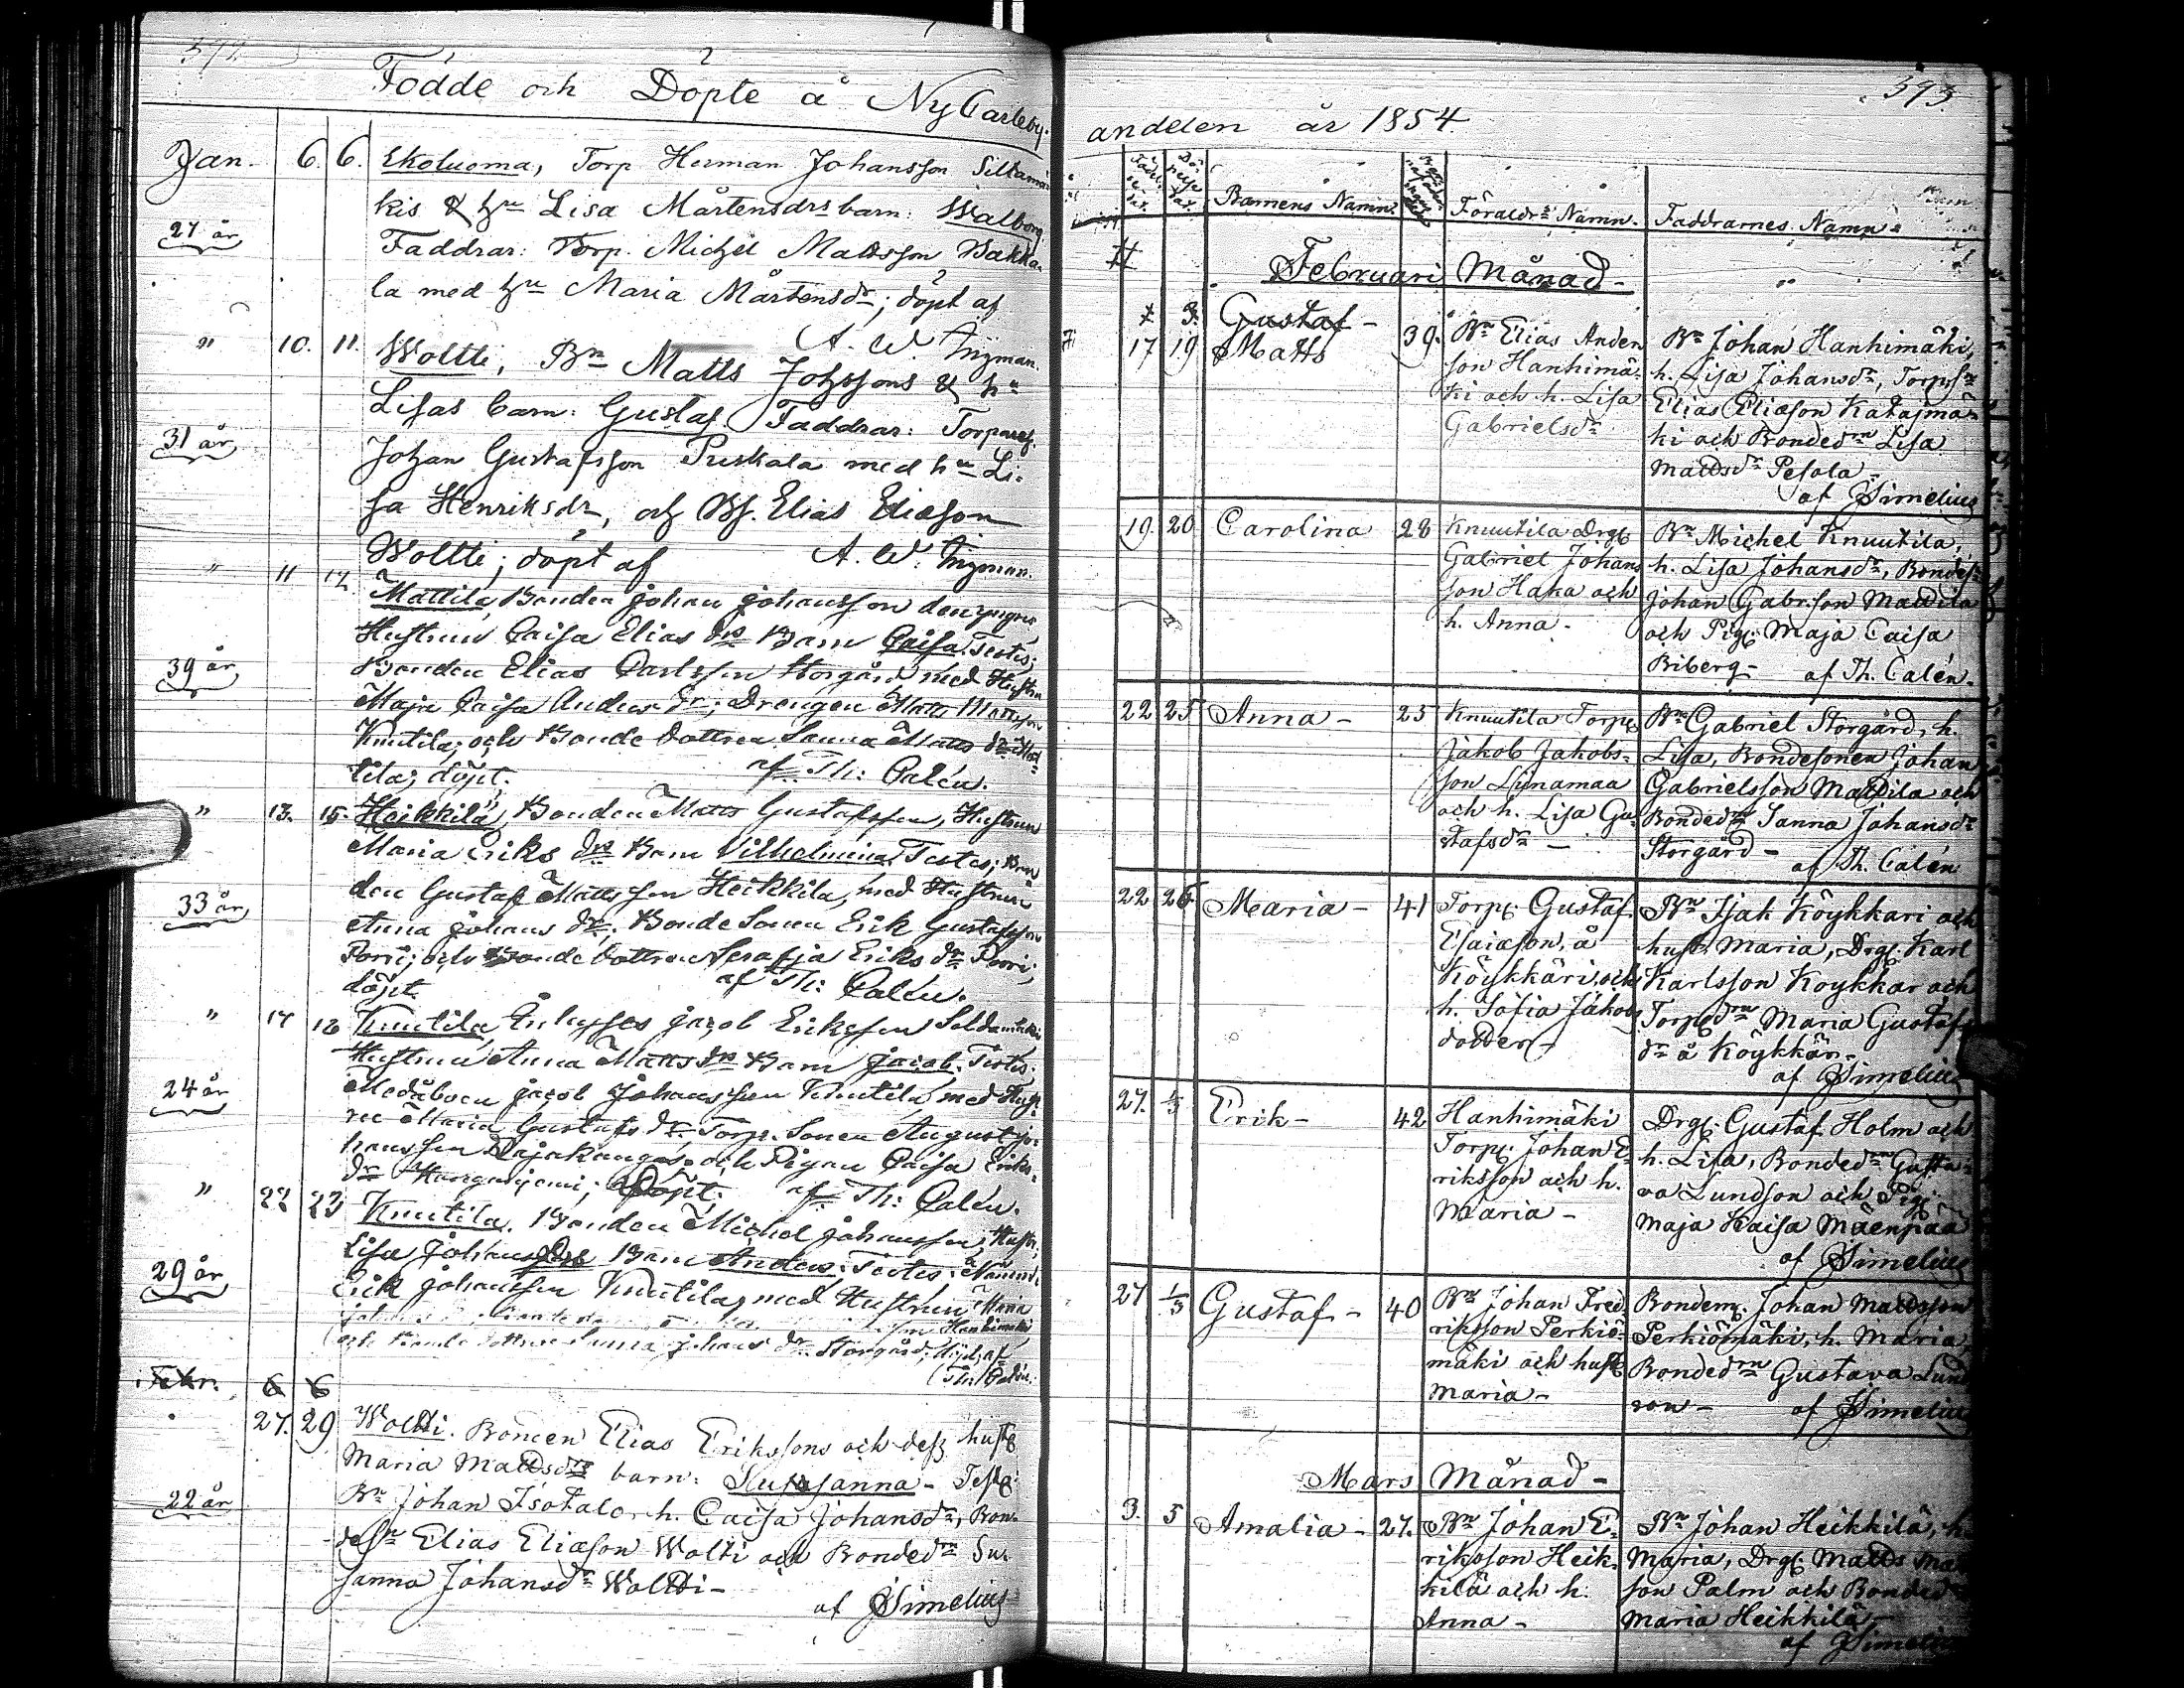 372
Födde och Döpte å NyCarleby-
Jan. 6. 6. Ekoluoma, Torp Herman Johansson Siltamä-
kis & hu Lisa Mårtensdrs barn: Walborg
27 år Faddrar: Torp. Michel Mattsson Wakka-
la med hu Maria Mårtensdr; döpt af
A. W. Ingman.
" 10. 11. Woltti, Bn Matts Johssons & hu
Lisas barn: Gustaf. Faddrar: Torpares.
31 år Johan Gustafsson Puskala med hu Li-
sa Henriksdr, och Bs. Elias Eliæson
Woltti; döpt af A. W. Ingman.
" 11 12. Mattila, Bonden Johan Johansson den yngres
Hustrun Caisa Elias drs Barn Caisa. Testes;
39 år Bonden Elias Carlsson Storgård med Hustru
Maja Caisa Anders dr; Drengen Matts Mattsson
Knutila; och Bonde dottren Sanna Matts dr Mat-
tila; döpt. af Th: Calén.
" 13. 15. Heikkilä, Bonden Matts Gustafsson, Hustrun
Maria Eriks drs Barn Vilhelmina. Testes; Bon-
33 år den Gustaf Mattsson Heikkila, med Hustrun
Anna Johans dr; Bonde Sonen Erik Gustafsson
Porri; och Bonde dottren Serafia Eriks dr Porri;
döpt. af Th: Calén.
" 17 18 Knutila, Jacob Eriksson
Hustrun Anna Matts drs Barn Jacob. Testes:
24 år Jacob Johansson Knutila med Hust-
ru Maria Gustafs dr. Torp. Sonen August Jo-
hansson Rajakangas och Pigan Caisa Eriks
dr Kangasjemi; Döpt. af Th: Calén.
" 22 23 Knutila. Bonden Michel Johansson, Hustr.
Lisa Johans drs Barn Anders. Testes:
29 år Erik Johansson Knutila, med Hustrun Maria
Hanhimäki
och Bonde dottren Sanna Johans dr Storgård; döpt af
Th: Calén.
Febr. 6 6
27. 29 Woltti. Bonden Elias Erikssons och dess hust
Maria Mattsdrs barn: Sussanna - Test:
22 år Bn Johan Isotalo, h. Caisa Johansdr, Bon-
desn Elias Eliæson Wolti och Bondedrn Su-
sanna Johansdr Woltti-
af Simelius
373.
andelen år 1854.
Barnens Namn. Föräldrs Namn. Faddrarnes Namn
Februari Månad -
1 3. Gustaf -
17 19 Matts 39. Bn Elias Anders
son Hanhimä-
ki och h. Lisa
Gabrielsdr
Bn Johan Hanhimäki,
h. Lisa Johansdr, Torpsn
Elias Eliæson Katajmä-
ki och Bondedrn Lisa
Mattsdr Pesola -
af Simelius
19. 20 Carolina 28 Knuutila Drg
Gabriel Johans
son Haka och
h. Anna -
Bn Michel Knuutila,
h. Lisa Johansdr, Bondesn
Johan Gabrson Mattila
och Pig. Maja Caisa
Riberg - af Th. Calén.
22 25 Anna - 25 Knuutila Torp.
Jakob Jakobs-
son Lynamaa
och h. Lisa Gu-
stafsdr -
Bn Gabriel Storgård, h.
Lisa, Bondesonen Johan
Gabrielsson Mattila och
Bondedrn Sanna Johansdr
Storgård -
af Th. Calén
22 26 Maria - 41 Torp. Gustaf
Esaiæson, å
Köykkäri, och
h. Sofia Jakobs
dotter -
Bn Isak Köykkari och
hust. Maria, Drg. Karl
Karlsson Köykkar och
Torpdrn Maria Gustafs
dr å Köykkär -
af Simelius
27. 1/3 Erik - 42 Hanhimäki
Torp. Johan E-
riksson och h.
Maria -
Drg. Gustaf Holm och
h. Lisa, Bondedrn Gusta-
va Lundson och Pig.
Maja Kaisa Mäenpää
af Simelius
27 1/3 Gustaf - 40 Bn Johan Fred
riksson Perkiö-
mäki och hust
Maria -
Bondem. Johan Mattsson
Perkiömäki, h. Maria,
Bondedrn Gustava Lund
son - af Simelius
Mars Månad -
3. 5 Amalia - 27. Bn Johan E-
riksson Heik-
kilä och h.
Anna -
Bn Johan Heikkilä, h
Maria, Drg. Matts Mat
son Palm och Bondedr
Maria Heikkilä -
af Simelius